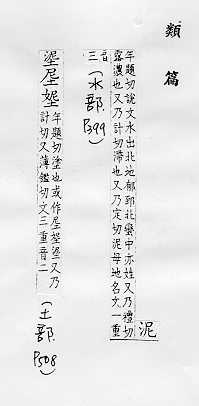 類篇
泥
年題切說文水出北地郁郅北蠻中亦姓又乃禮切
露濃也又乃計切滯也又乃定切泥母地名文一重
音三(水部 P399)
埿
年題切塗也或作又乃
計切又薄鑑切文三重音二
(土部 P508)